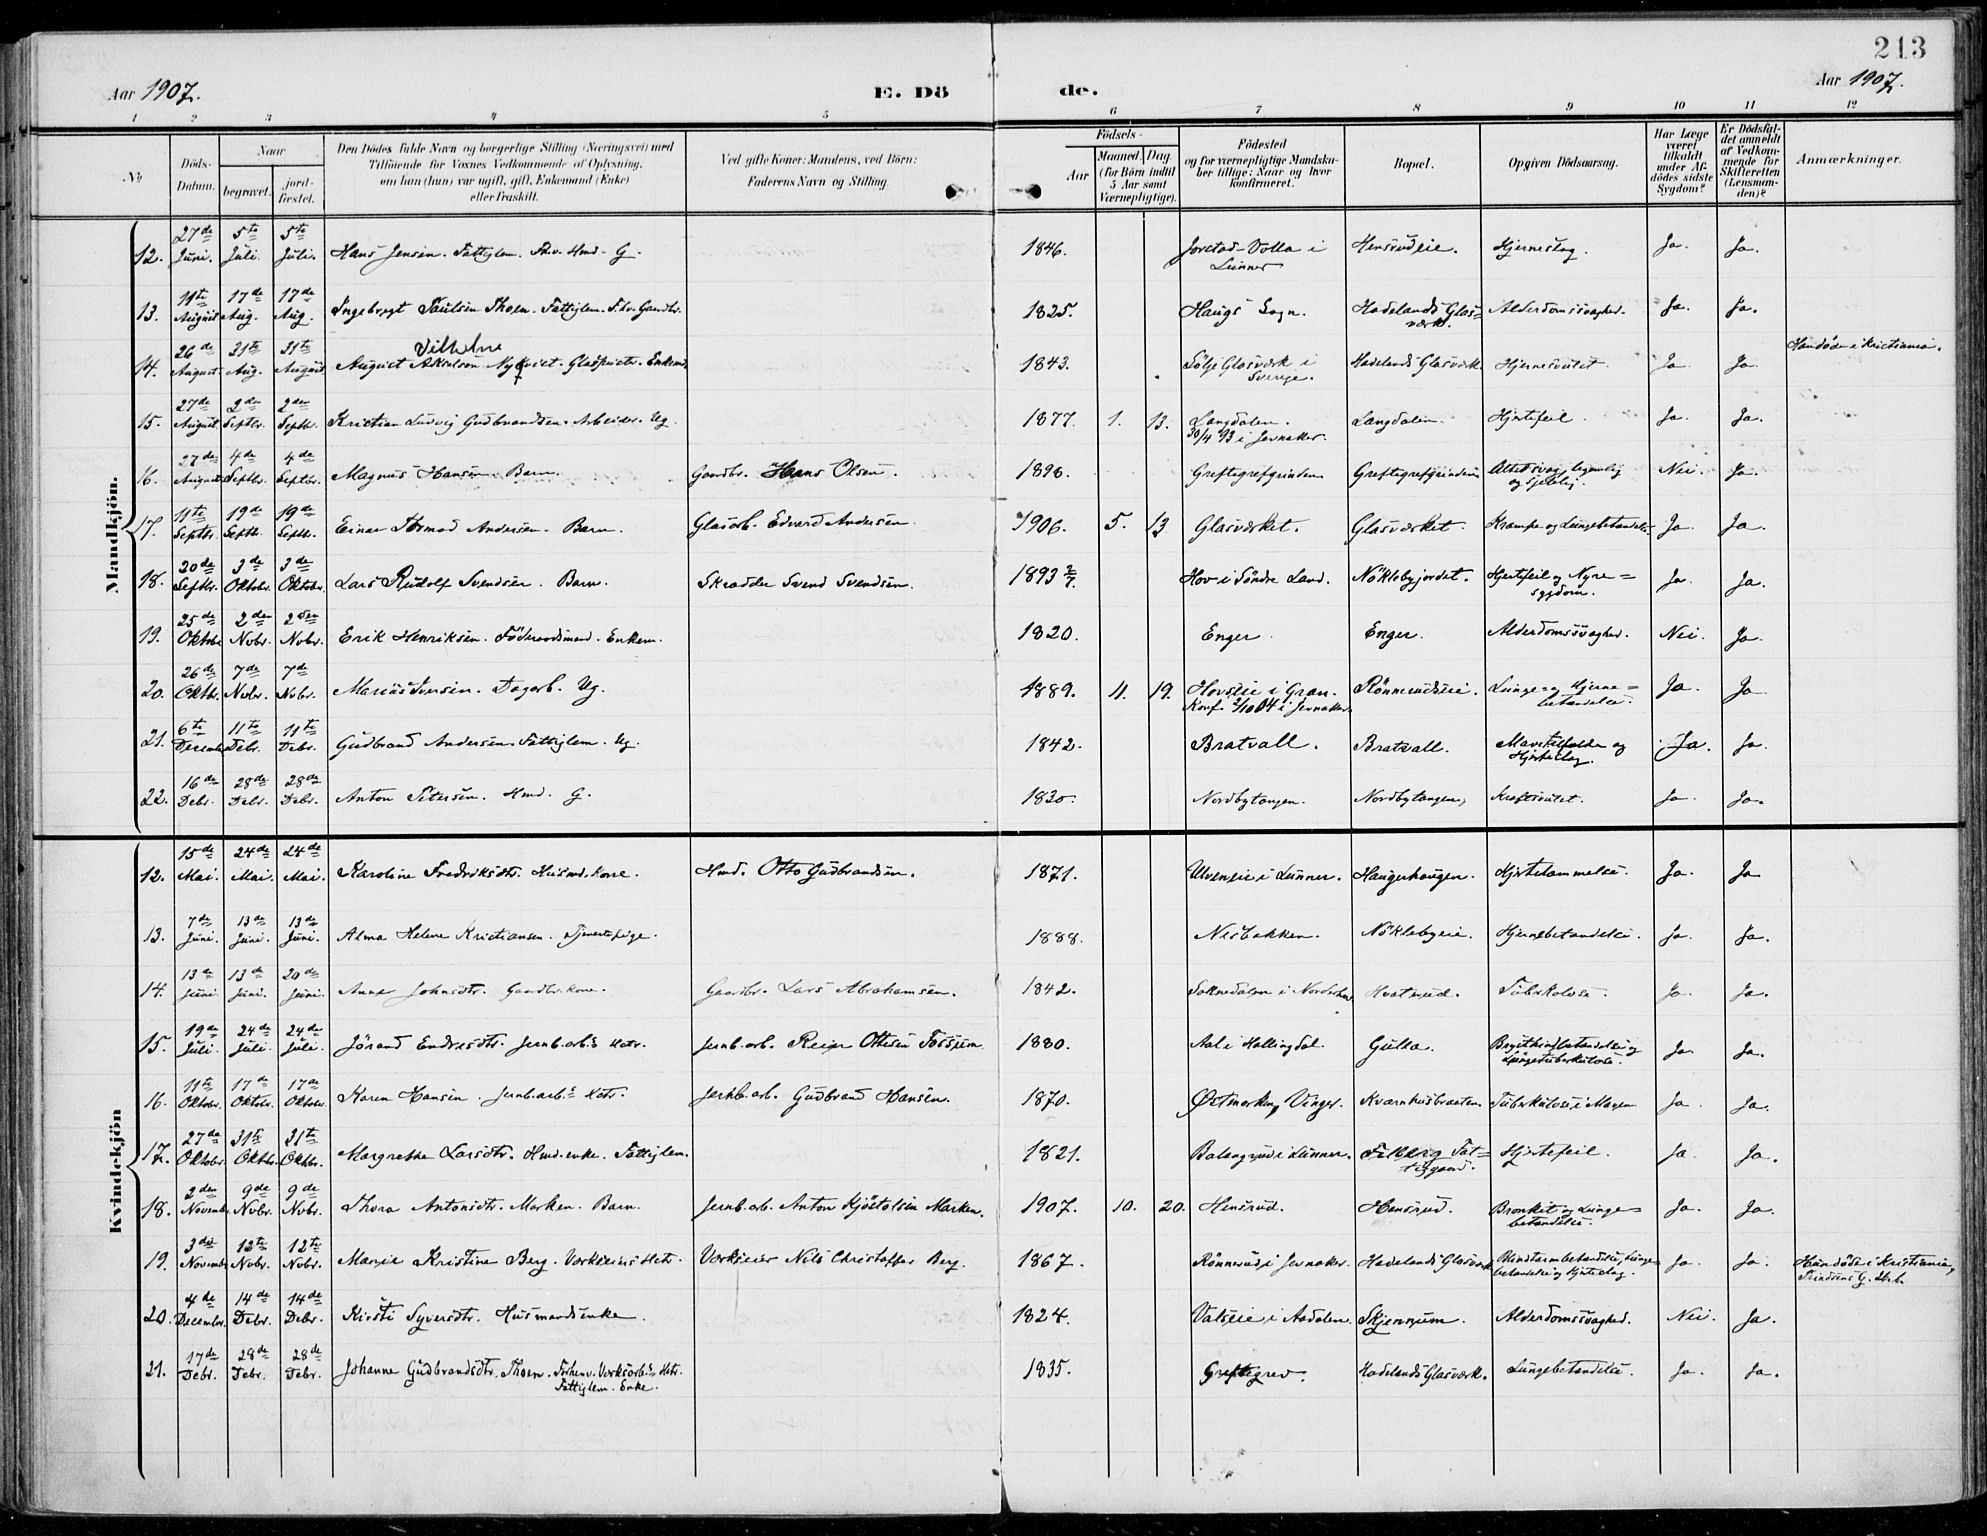 213
Aar 1907.
E. Dö
de.
Aar 1907.
1 2 3 4 5 6 7 8 9 10 11 12
№
Döds-Datum.
Naar
begravet.
jord-fæstet.
Den Dödes fulde Navn og borgerlige Stilling (Næringsvei) med
Tilföiende for Voxnes Vedkommende af Oplysning,
om han (hun) var ugift, gift, Enkemand (Enke)
eller fraskilt.
Ved gifte Koner: Mandens, ved Börn:
Faderens Navn og Stilling.
Födsels-
Aar
Maaned. Dag.
(for Börn indtil
5 Aar samt
Værnepligtige).
Födested
og for værnepligtige Mandska-
ber tillige: Naar og hvor
konfirmeret.
Bopæl.
Opgiven Dödsaarsag.
Har Læge
været
tilkaldt
under Af-
dödes sidste
Sygdom?
Er Dödsfal-
det anmeldt
af Vedkom-
mende for
Skifteretten
(Lensman-
den)?
Anmærkninger.
Mandkjön.
12. 27de Juni. 5te Juli. 5te Juli. Hans Jensen. Fattiglem. Fhv. Hmd. G. 1846. Jorstad-Volla i Lunner Hensrudeie. Hjerneslag. Ja. Ja.
13. 11te August 17de Aug. 17de Aug. Ingebregt Paulsen Thoen. Fattiglem. Fhv. Gaardbr. 1825. Haugs Sogn. Hadelands Glas-værk. Alderdomssvaghed. Ja. Ja.
14. 26de August. 31te Aug. 31te August August Vilhelm Akselson Nykvist. Glaspuster. Enkemd. 1843. Sölje Glasværk i Sverige. Hadelands Glasværk. Hjernesvulst. Ja. Ja. Han döde i Kristiania.
15. 27de August 2den Septbr. 2den Septbr. Kristian Ludvig Gudbrandsen. Arbeider. Ug. 1877. 1. 13. Langdalen. 30/4 93 i Jevnaker. Langdalen. Hjertefeil. Ja. Ja.
16. 27de August 4de Septbr. 4de Septbr. Magnus Hansen. Barn. Gaardbr. Hans Olsen. 1898. Greftegrefgrinden Greftegrefgrinden Altid svag, legemlig og sjelelig. Nei. Ja.
17. 11te Septbr. 19de Septbr. 19de Septbr. Einar Thormod Andersen. Barn. Glasarb. Edvard Andersen. 1906. 5. 13 Glasværket. Glasværket. Krampe og Lungebetændelse. Ja. Ja.
18. 20de Septbr. 3de Oktober. 3de Oktober. Lars Rudolf Svendsen. Barn. Skrædder Svend Svendsen. 1893 2/7. Hov i Söndre Land. Nöklebyjordet. Hjertefeil og Nyre-sygdom. Ja. Ja.
19. 25de Oktober 2den Novbr. 2den Novbr. Erik Henriksen. Föderaadsmand. Enkem. 1820. Enger. Enger. Alderdomssvaghed. Nei. Ja.
20. 26de Oktbr. 7de Novbr. 7de Novbr. Marius Iversen. Dagarb. Ug. 1889. 11. 19. Hovseie i Gran. Konf. 2/10 04 i Jevnaker. Rönnerudseie. Lunge- og Hjerne-betændelse. Ja. Ja
21. 6te December 11te Debr. 11te Debr. Gudbrand Andersen. Fattiglem. Ug. 1842. Bratvall. Bratvall. Mavetilfælde og Hjerteslag. Ja. Ja.
22. 16de Debr. 28de Debr. 28de Debr. Anton Petersen. Hmd. G. 1830. Nordbytangen. Nordbytangen, Kræftsvulst. Ja. Ja.
Kvindekjön
12. 15de Mai. 24de Mai. 24de Mai. Karoline Fredriksdtr. Husmd. kone. Hmd. Otto Gudbrandsen. 1871. Ulveneie i Lunner. Haugerhaugen. Hjertelammelse. Ja. Ja
13. 7de Juni. 13de Juni. 13de Juni. Alma Helene Kristiansen. Tjenestepige. 1888. Nesbakken. Nöklebyeie. Hjernebetændelse. Ja. Ja.
14. 13de Juni 13de Juni. 20de Juni. Anne Johnsdtr. Gaardbr. kone. Gaardbr. Lars Abrahamsen. 1842. Soknedalen i Norderhov Hvatsrud. Tuberkulose. Ja. Ja.
15. 19de Juli. 24de Juli. 24de Juli. Jörand Endresdtr. Jernb.arb.s Hstr. Jernb.arb. Reier Ottesen Fossum. 1880. Aal i Hallingdal. Gulla. Brysthindebetændelse og Lungetuberkulose. Ja. Ja.
16. 11te Oktober. 17de Oktober. 17de Oktober. Karen Hansen. Jernb.arb.s Hstr. Jernb.arb. Gudbrand Hansen. 1870. Östmarken, Vinger. Kværnhusbraaten. Tuberkulose i Maven Ja. Ja.
17. 27de Oktober. 31te Oktbr. 31te Oktbr. Margrethe Larsdtr. Hmd. enke. Fattiglem. 1821. Balangrud i Lunner. Fattiggaard. Hjertefeil. Ja. Ja.
18. 2den Novembr. 9de Novbr. 9de Novbr. Thora Antonsdtr. Marken. Barn. Jernb.arb. Anton Kjöstolsen Marken. 1907. 10. 20. Hensrud. Hensrud. Bronkit og Lunge-betændelse. Ja. Ja.
19. 3die Novembr. 12te Novbr. 12te Novbr. Marie Kristine Berg. Værkseiers Hstr. Værkseier Nils Christoffer Berg. 1867. Rönnerud i Jevnaker. Hadelands Glasværk Blindtarmbetændelse, Lunge-betændelse og Hjerteslag. Ja. Ja. Hun döde i Kristiania,
20. 4de Decembr. 14de Debr. 14de Debr. Kirsti Syversdtr. Husmandsenke. 1824. Valseie i Aadalen. Skjerrum. Alderdomssvaghed. Nei. Ja.
21. 17de Debr. 28de Debr. 28de Debr. Johanne Gudbrandsdtr. Thoen. Forhenv. Værksarb.s Hstr. Fattiglem. Enke. 1835. Greftegrev. Hadelands Glasværk. Lungebetændelse. Ja. Ja.